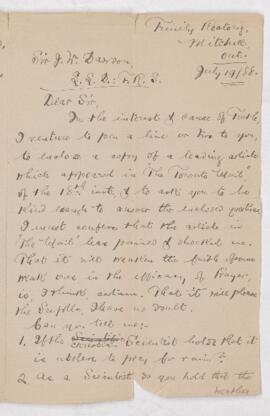 Trinity Rectory,
Mitchell,
Ont.
July 19/88.
Sir J. W. Dawson,
L. L. D.: F. R. S.
Dear Sir,
In the interest & cause of Truth,
I venture to pen a line or two to you,
to enclose a copy of a leading article
which appeared in The Toronto "Mail",
of the 18th inst, & to ask you to be
kind enough to answer the enclosed
I must confess that the article in
the "Mail" has pained & shocked me.
That it will weaken the faith of some
weak ones in the efficacy of Prayer,
is, I think certain. That it will please
the I have no doubt.
Can you tell me:-
1. If the Christian Scientist holds that it
is useless to pray for rain?
2. As a Scientist do you hold that the
weather